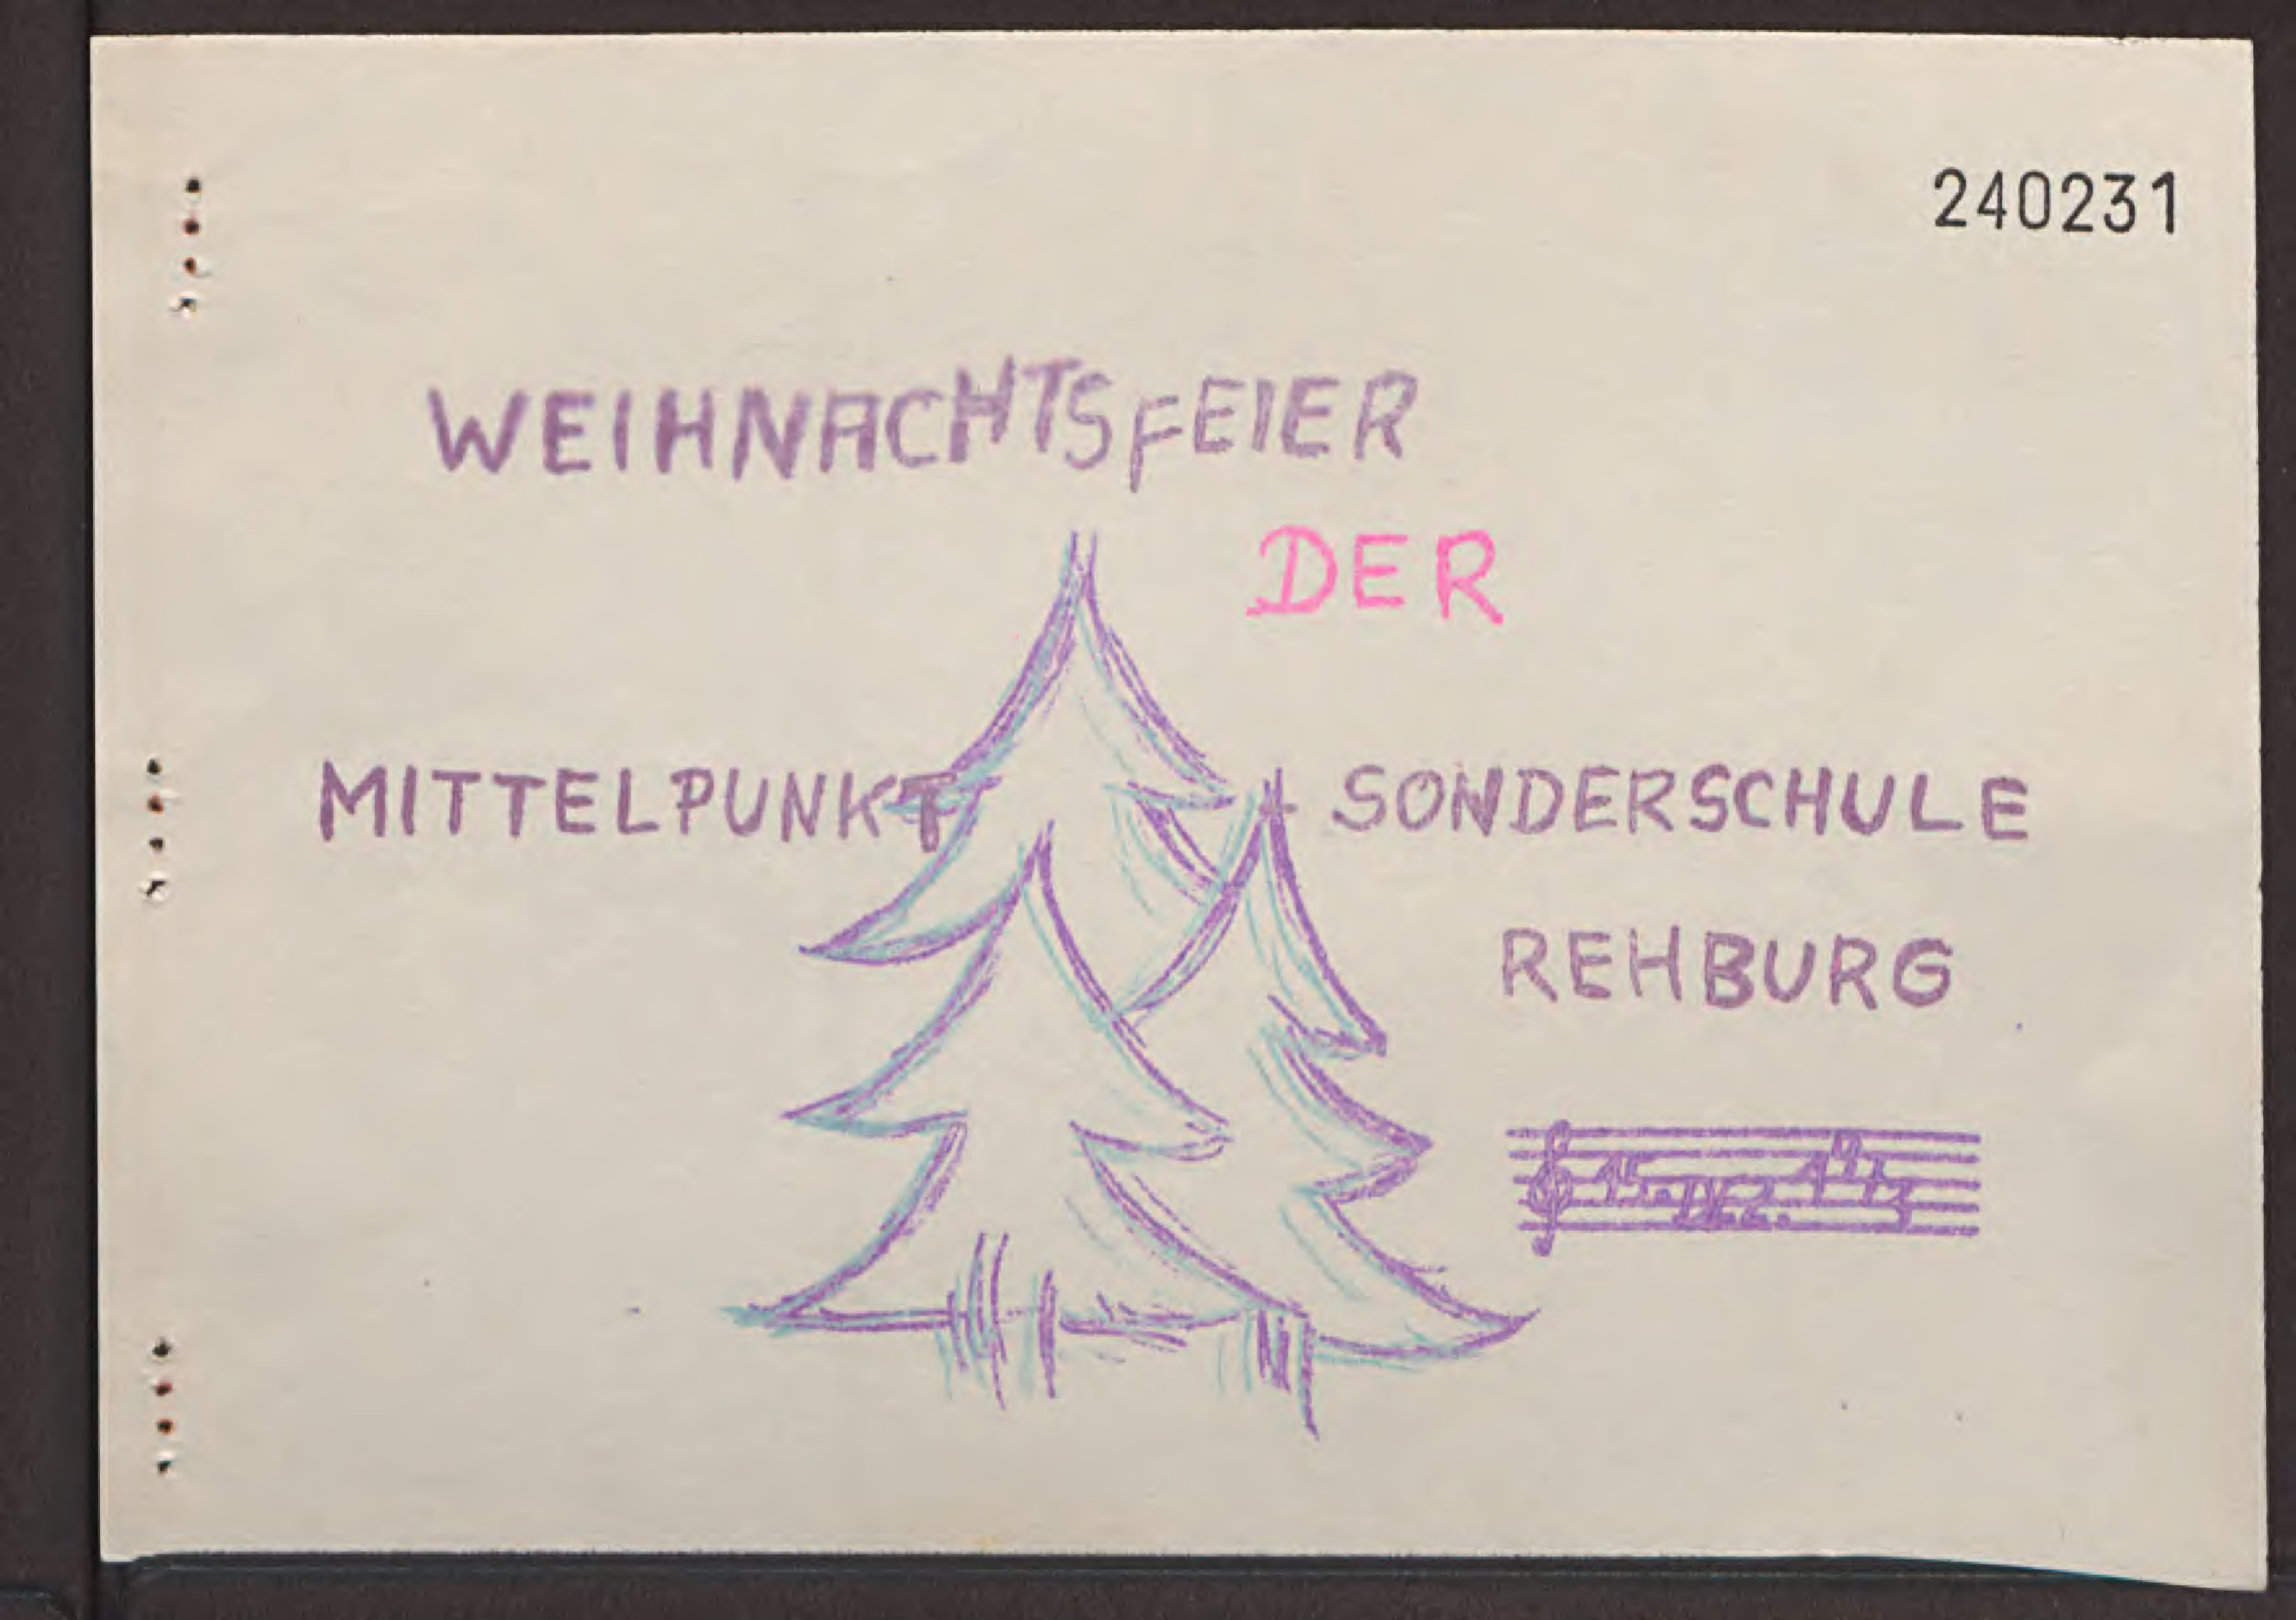 240231
WEIHNACHTSFEIER
DER
MITTELPUNKT SONDERSCHULE
REHBURG